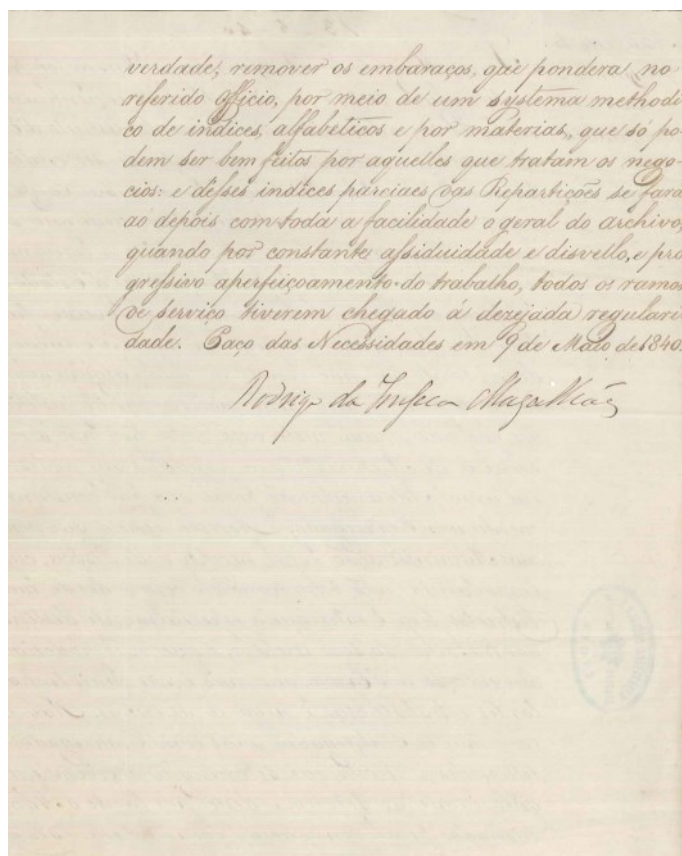 verdade; remover os embaraços, que pondera no
referido Officio, por meio de um systema methodi
co de indices, alfabeticos e por materias, que só po
dem ser bem feitos por aquelles que tratam os nego
cios: e desses indices parciaes das Repartições se fará
ao depois com toda a facilidade o geral do archivo,
quando por constante assiduidade e disvello, e pro
gressivo aperfeiçoamento do trabalho, todos os ramos
de serviço tiverem chegado á dezejada regulari
dade. Paço das Necessidades em 9 de Maio de 1840.
Rodrigo da Fonseca Magalhães